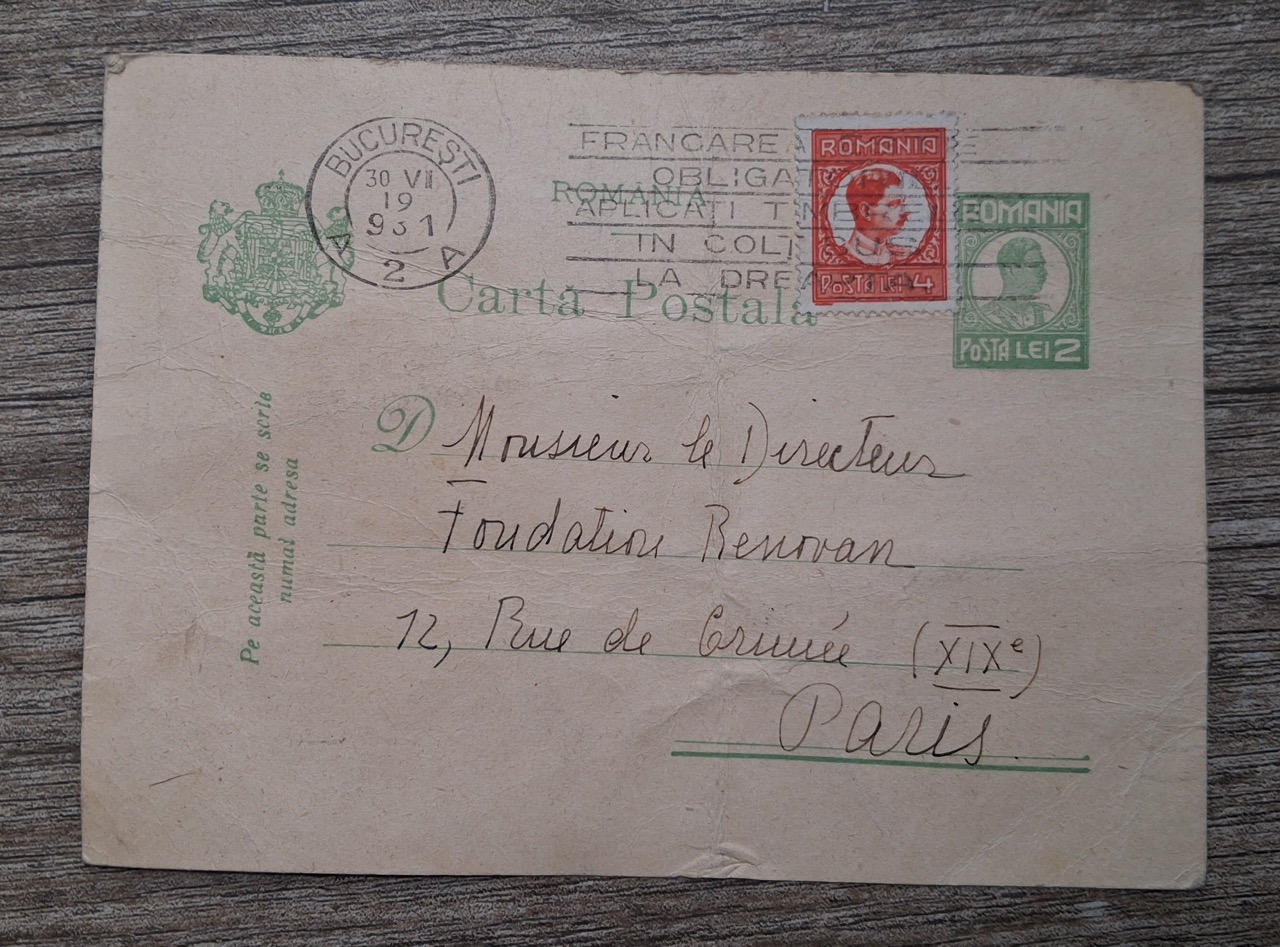 BUCUREȘTI
30 VII
19
931
A 2 A
FRANCARE
OBLIGAT
APLICATI TIMBRE
IN COLTUL
LA DREAPTA
ROMANIA
Carta Postala
ROMANIA
POSTA LEI 4
ROMANIA
POSTA LEI 2
Pe această parte se scrie
numai adresa
D Monsieur le Directeur
Fondation Renovan
12, Rue de Crimée (XIXe)
Paris.